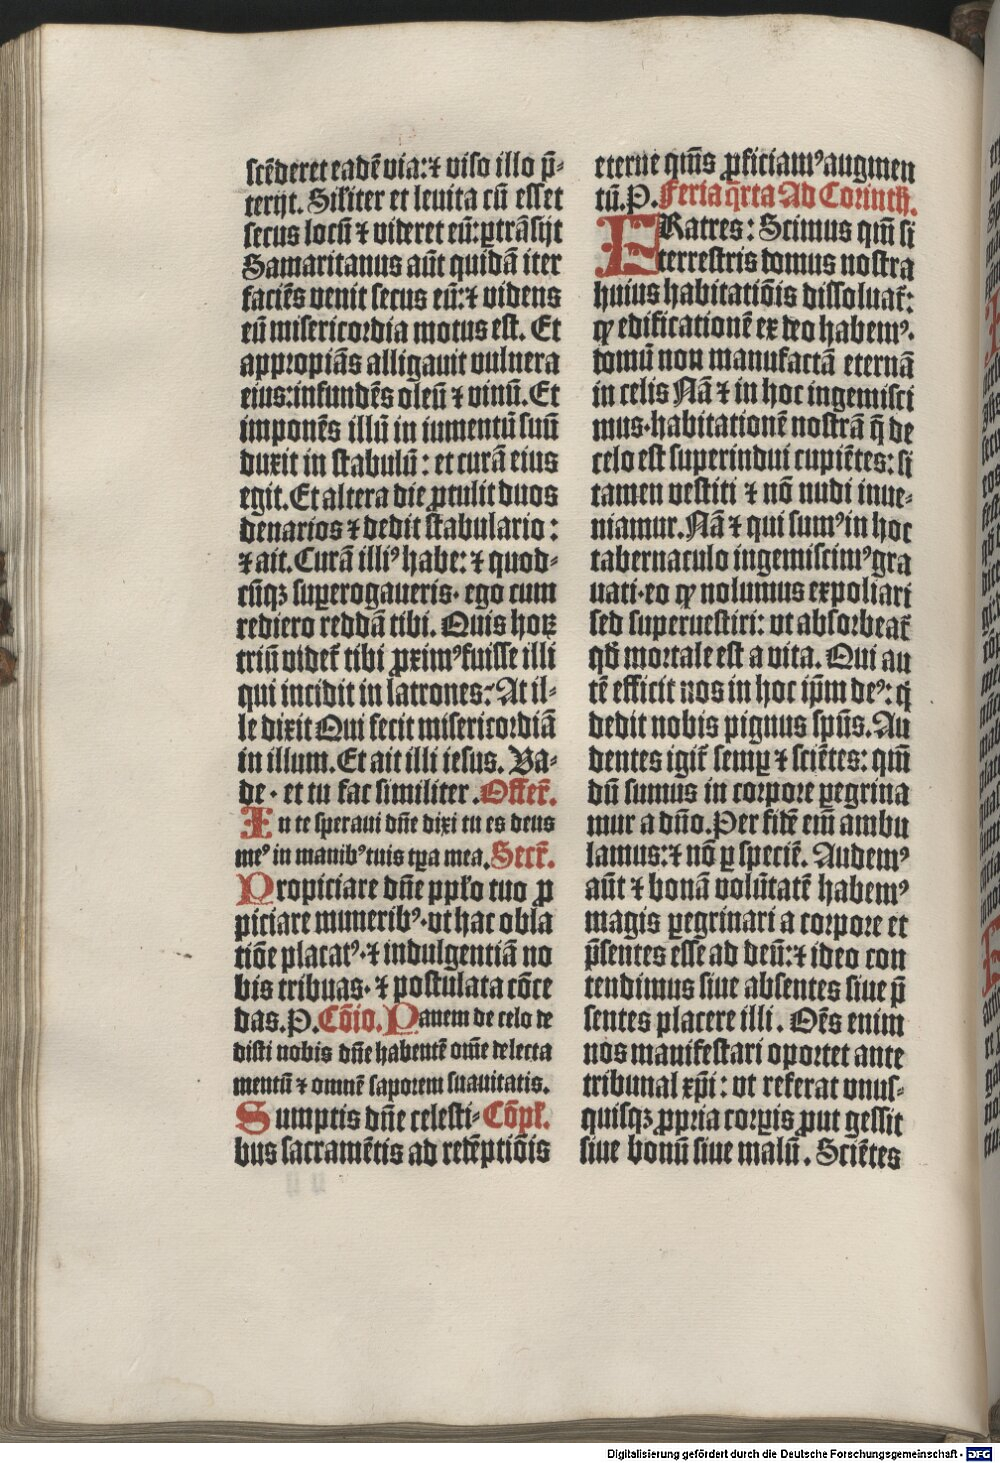 scēderet eadē via: ⁊ viso illo p̄-
terijt. Siłiter et levita cū esset
secus locū ⁊ videret eū: ꝑtrāsijt
Samaritanus aūt quidā iter
faciēs venit secus eū: ⁊ videns
eū misericordia motus est. Et
appropiās alligavit vulnera
eius: infundēs oleū ⁊ vinū. Et
imponēs illū in iumentū suū
duxit in stabulū: et curā eius
egit. Et altera die ꝓtulit duos
denarios ⁊ dedit stabulario:
⁊ ait. Curā illiꝰ habe: ⁊ quod-
cūqꝫ suꝑerogaveris· ego cum
rediero reddā tibi. Quis hoꝝ
triū videt᷑ tibi ꝓximꝰ fuisse illi
qui incidit in latrones: At il-
le dixit Qui fecit misericordiā
in illum. Et ait illi iesus. Va-
de· et tu fac similiter. Offer̄.
In te speravi dn̄e dixi tu es deus
meꝰ in manibꝰ tuis tꝑa mea. Secr̄.
Propiciare dn̄e ppło tuo ꝓ
piciare muneribꝰ· vt hac obla
tiōe placatꝰ· ⁊ indulgentiā no
bis tribuas· ⁊ postulata cōce
das. P. Cōio. Panem de celo de
disti nobis dn̄e habentē om̄e delecta
mentū ⁊ omnē saporem suavitatis.
Sumptis dn̄e celesti- Cōpł.
bus sacramētis ad redēptiōis
eterne qm̄s ꝓficiamꝰ augmen
tū. P. Feria q̄rta Ad Corinth̄.
FRatres: Scimus qm̄ si
terrestris domus nostra
huius habitatiōis dissoluat᷑:
ꝙ edificationē ex deo habemꝰ·
domū non manufactā eternā
in celis Nā ⁊ in hoc ingemisci
mus· habitationē nostrā q̄ de
celo est superindui cupiētes: si
tamen vestiti ⁊ nō nudi inve-
niamur. Nā ⁊ qui sumꝰ in hoc
tabernaculo ingemiscimꝰ gra
vati· eo ꝙ nolumus expoliari
sed supervestiri: vt absorbeat᷑
qd̄ mortale est a vita. Qui au
tē efficit nos in hoc ip̄m deꝰ: q̇
dedit nobis pignus sp̄us. Au
dentes igit᷑ semꝑ ⁊ sciētes: qm̄
dū sumus in corpore ꝑegrina
mur a dn̄o. Per fidē em̄ ambu
lamus: ⁊ nō ꝑ speciē. Audemꝰ
aūt ⁊ bonā volūtatē habemꝰ
magis ꝑegrinari a corpore et
p̄sentes esse ad deū: ⁊ ideo con
tendimus sive absentes sive p̄
sentes placere illi. Oēs enim
nos manifestari oportet ante
tribunal xp̄i: vt referat vnus-
quisqꝫ ꝓpria corꝑis ꝓut gessit
sive bonū sive malū. Sciētes
Digitalisierung gefördert durch die Deutsche Forschungsgemeinschaft - DFG